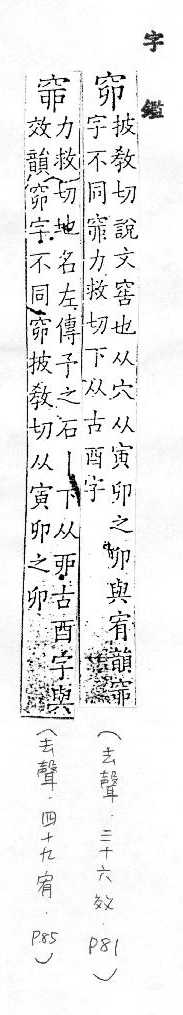 字鑑
窌
披敎切說文窖也从穴从寅卯之卯與宥韻窌
字不同窌力救切下从古酉字
（去聲．三十六效．P81）
窌
力救切地名左傳予之石丨下从丣古酉字與
效韻窌字不同窌披敎切从寅卯之卯
（去聲．四十九宥．P.85）